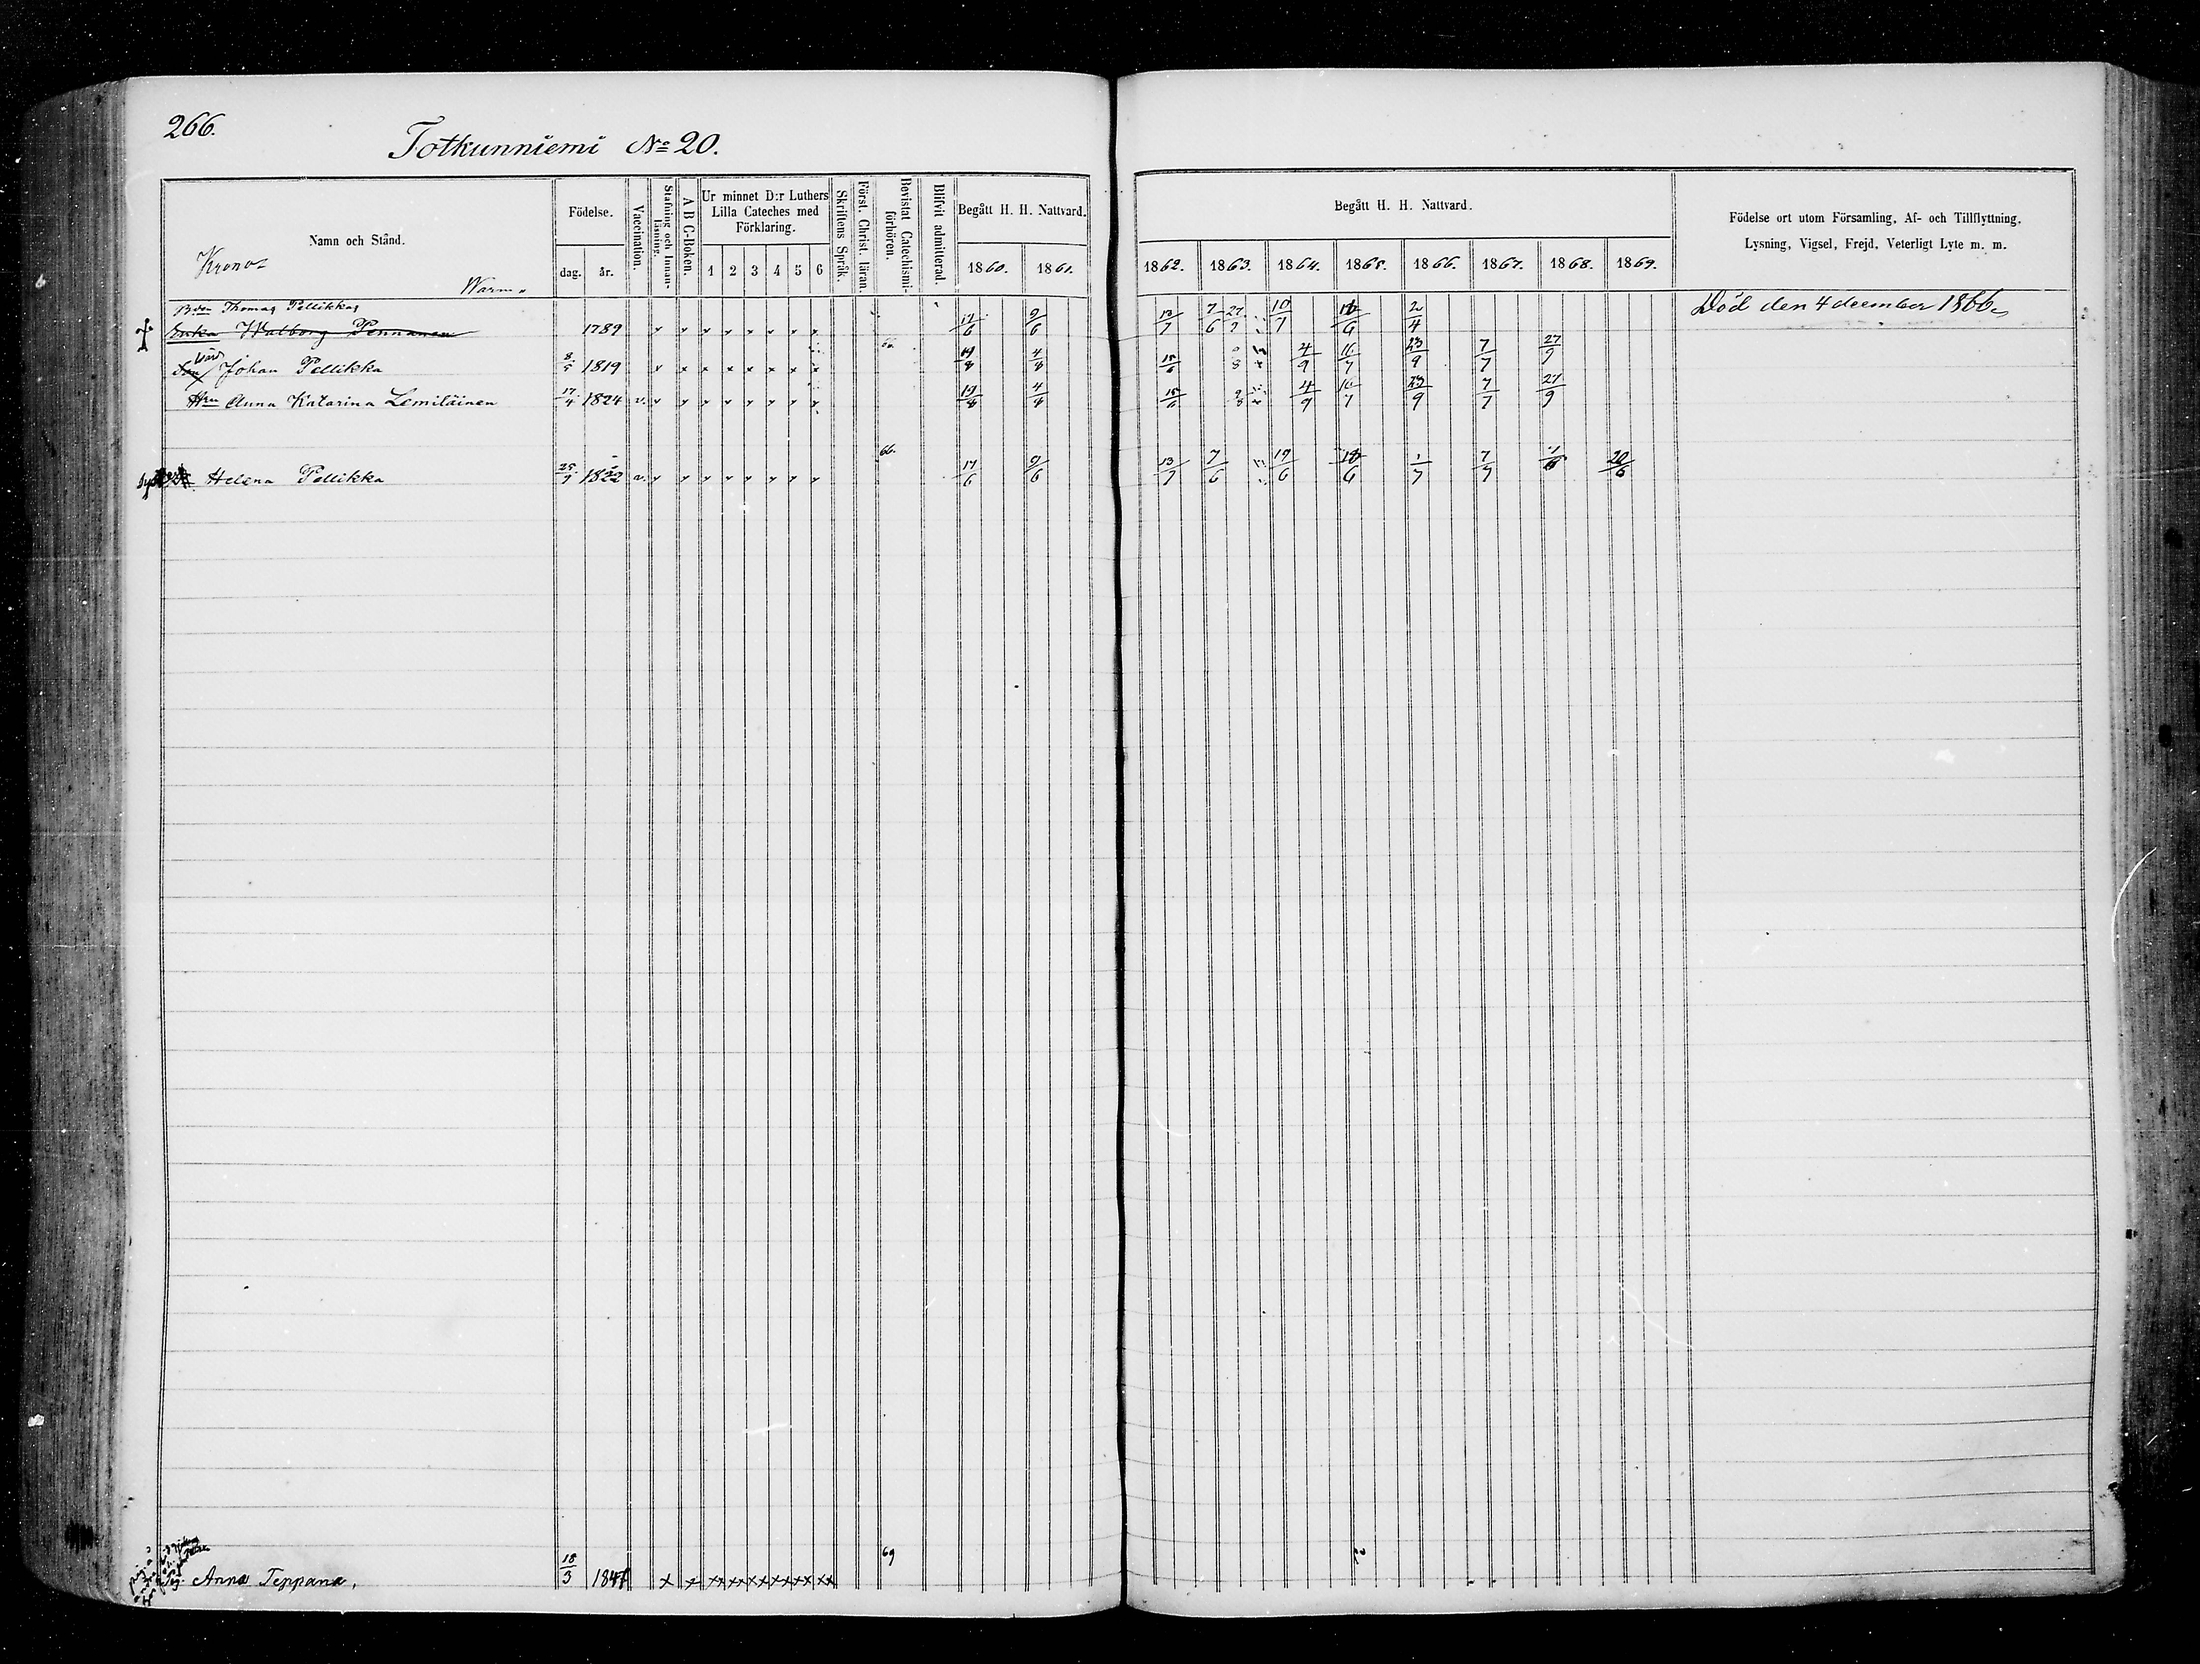 266.
Totkunniemi No 20.
Namn och Stånd.
Födelse.
dag. år.
Vaccination.
Stafning och Innanläsning.
A B C-Boken.
Ur minnet D:r Luthers Lilla Cateches med Förklaring.
1 2 3 4 5 6
Skriftens Språk.
Först. Christ. läran.
Bevistat Catechismi-förhören.
Blifvit admitterad.
Begått H. H. Nattvard.
1860. 1861.
Begått H. H. Nattvard.
1862. 1863. 1864. 1865. 1866. 1867. 1868. 1869.
Födelse ort utom Församling, Af- och Tillflyttning,
Lysning, Vigsel, Frejd, Veterligt Lyte m. m.
Krono-
Bdn Thomas Pellikkas
Enka Walborg Pennanen 1789 17/6 9/6 13/7 7/6 27/7 10/7 18/6 2/4 Död den 4 december 1866
Johan Pellikka 8/5 1819 66. 19/8 4/8 15/6 4/9 16/7 23/9 7/7 27/9
Hru Anna Katarina Lemiläinen 17/4 1824 v. 19/8 4/8 15/6 4/9 16/7 23/9 7/7 27/9
Helena Pellikka 25/7 1822 v. 66. 17/6 9/6 13/7 7/6 19/6 18/6 1/7 7/7 20/6
Anna Teppana, 18/3 69